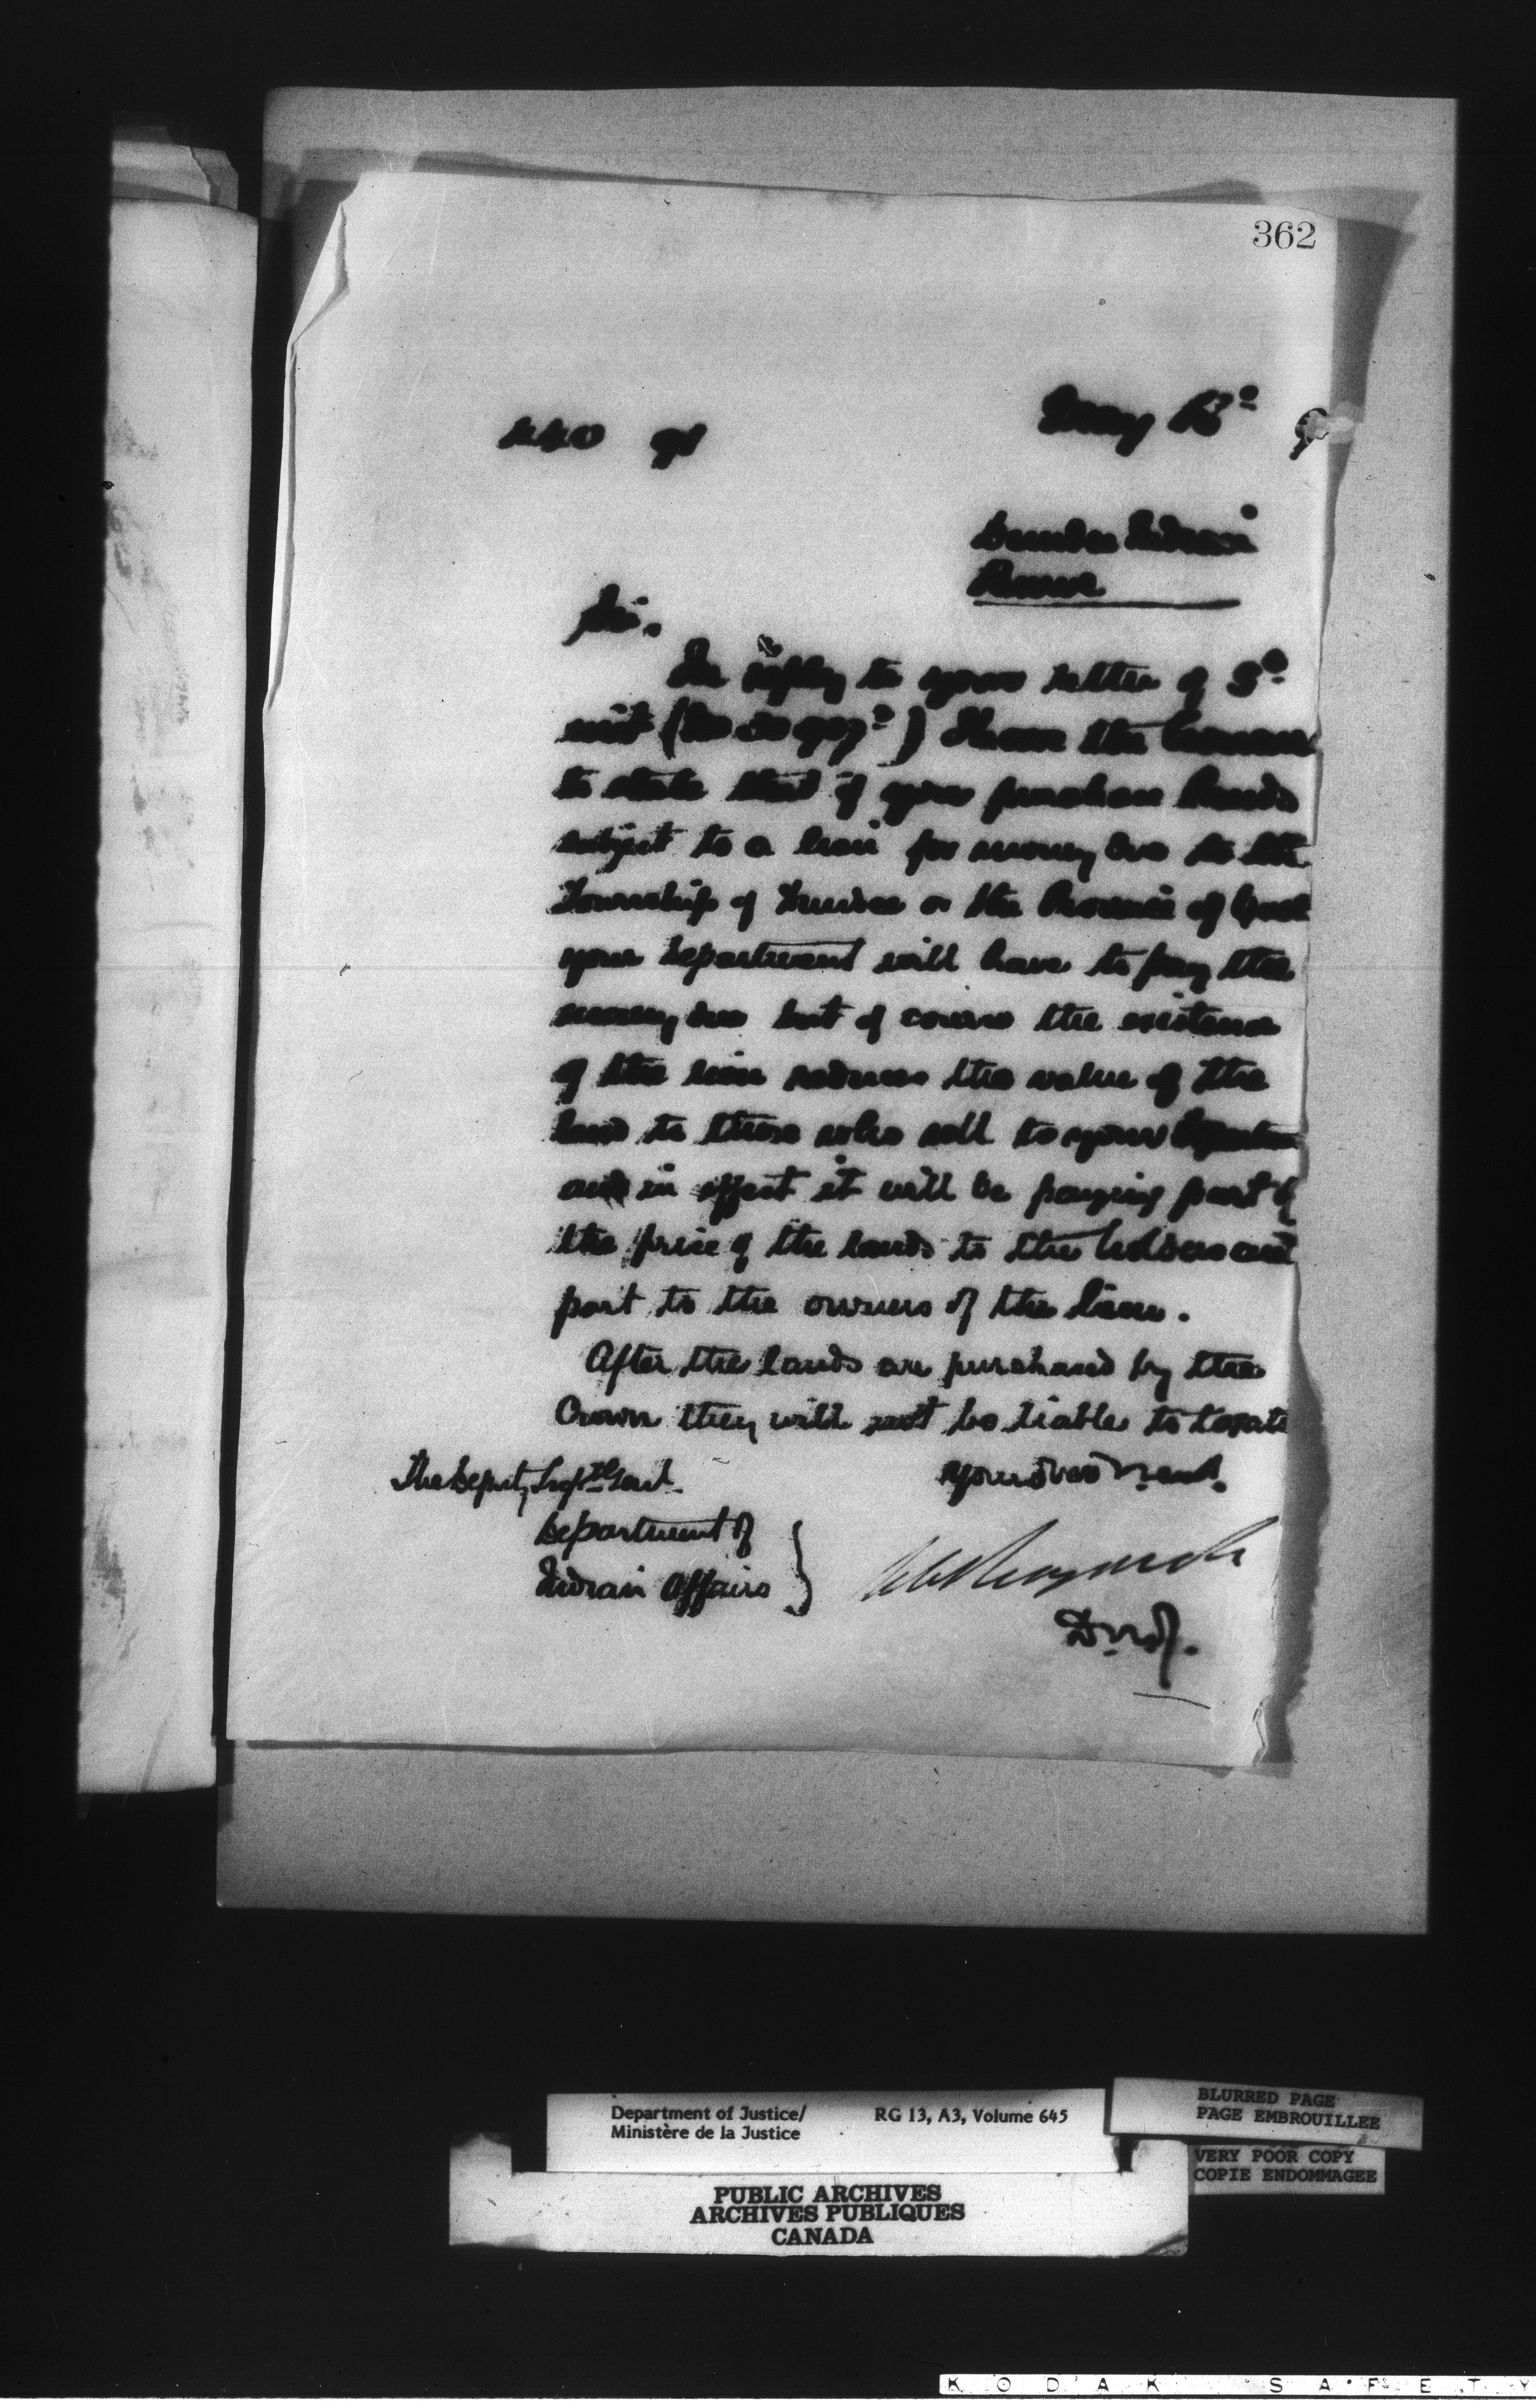 362
440 91
May 13
Dundee Indian
Reserve
Sir.
In reply to your letter of 3
inst (No I have the honour
to state that if you purchase lands
subject to a lien for money due to the
Township of Dundee or the Province of Queb
your Department will have to pay the
money due but of course the existence
of the lien reduces the value of the
land to those who sell to your Departm
and in effect it will be paying part of
the price of the lands to the holders and
part to the owners of the lien.
After the lands are purchased by the
Crown they will not be liable to taxati
The Deputy Supt Genl.
Department of
Indian Affairs
D.M.J.
Department of Justice/
Ministère de la Justice
RG 13, A3, Volume 645
BLURRED PAGE
PAGE EMBROUILLEE
VERY POOR COPY
COPIE ENDOMMAGEE
PUBLIC ARCHIVES
ARCHIVES PUBLIQUES
CANADA
KODAK SAFETY